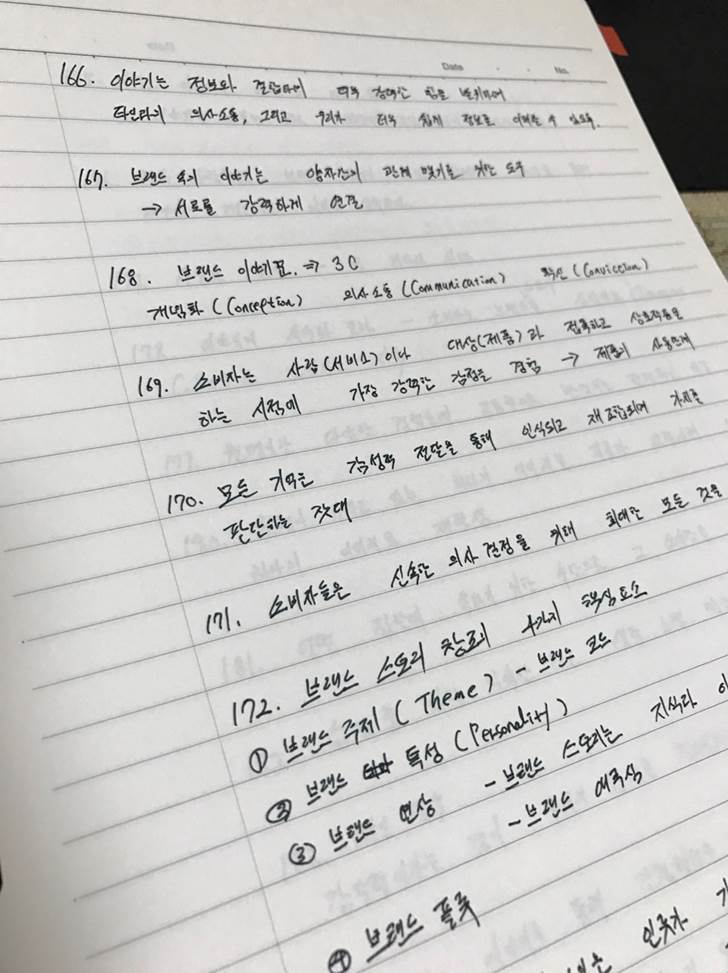 Date . . No.
166. 이야기는 정보와 결합하여 더욱 강력한 힘을 발휘하여
타인과의 의사소통, 그리고 우리가 더욱 쉽게 정보를 이해할 수 있도록.
167. 브랜드 속의 이야기는 양자간의 관계 맺기를 위한 도구
→ 서로를 강력하게 연결
168. 브랜드 이야기표. ⇒ 3C
개념화 (Conception) 의사소통 (Communication) 확신 (Conviction)
169. 소비자는 사람(서비스)이나 대상(제품)과 접촉하고 상호작용을
하는 시점에 가장 강력한 감정을 경험 → 제품의 사용단계
170. 모든 기억은 감성적 전달을 통해 인식되고 재조합되며 가치를
판단하는 잣대
171. 소비자들은 신속한 의사결정을 위해 최대한 모든 것을
172. 브랜드 스토리 창조의 4가지 핵심요소
① 브랜드 주제 (Theme) - 브랜드 코드
② 브랜드 특성 (Personality)
③ 브랜드 연상 - 브랜드 스토리는 지식과
- 브랜드 어휘식
④ 브랜드 플롯
인물과